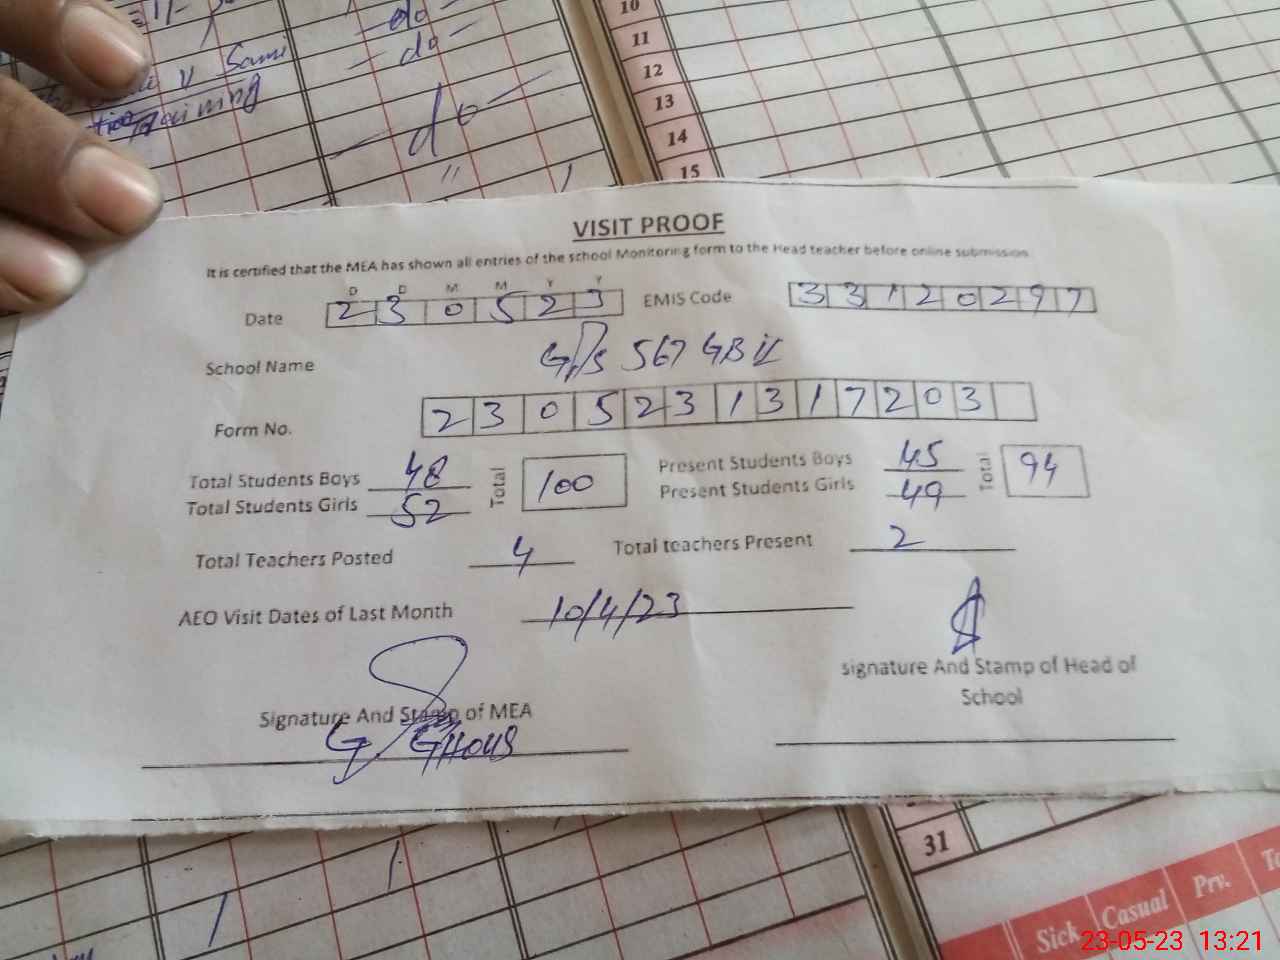 - do -
- do -
Same
Training
- do -
"
10
11
12
13
14
15
VISIT PROOF
It is certified that the MEA has shown all entries of the school Monitoring form to the Head teacher before online submission
D D M M Y Y
Date 2 3 0 5 2 3 EMIS Code 3 3 1 2 0 2 9 7
School Name G/S 567 GB
Form No. 2 3 0 5 2 3 1 3 1 7 2 0 3
Total Students Boys 48 Total 100 Present Students Boys 45 Total 94
Total Students Girls 52 Present Students Girls 49
Total Teachers Posted 4 Total teachers Present 2
AEO Visit Dates of Last Month 10/4/23
signature And Stamp of Head of
School
Signature And Stamp of MEA
G/GHOUS
31
Sick Casual Prv.
23-05-23 13:21